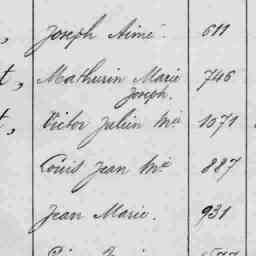 , Joseph Aimé. 611
t, Mathurin Marie 746
Joseph.
t, Victor Julien Mie 1071
Louis Jean Mie 887
Jean Marie. 931